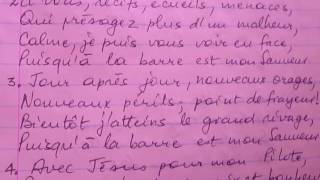 à vous, récifs, écueils, menaces,
Qui présagez plus d'un malheur,
Calme, je puis vous voir en face,
Puisqu'à la barre est mon Sauveur
3. Jour après jour, nouveaux orages,
Nouveaux périls, point de frayeur!
Bientôt j'atteins le grand rivage,
Puisqu'à la barre est mon Sauveur
4. Avec Jésus pour mon Pilote,
et bonheur